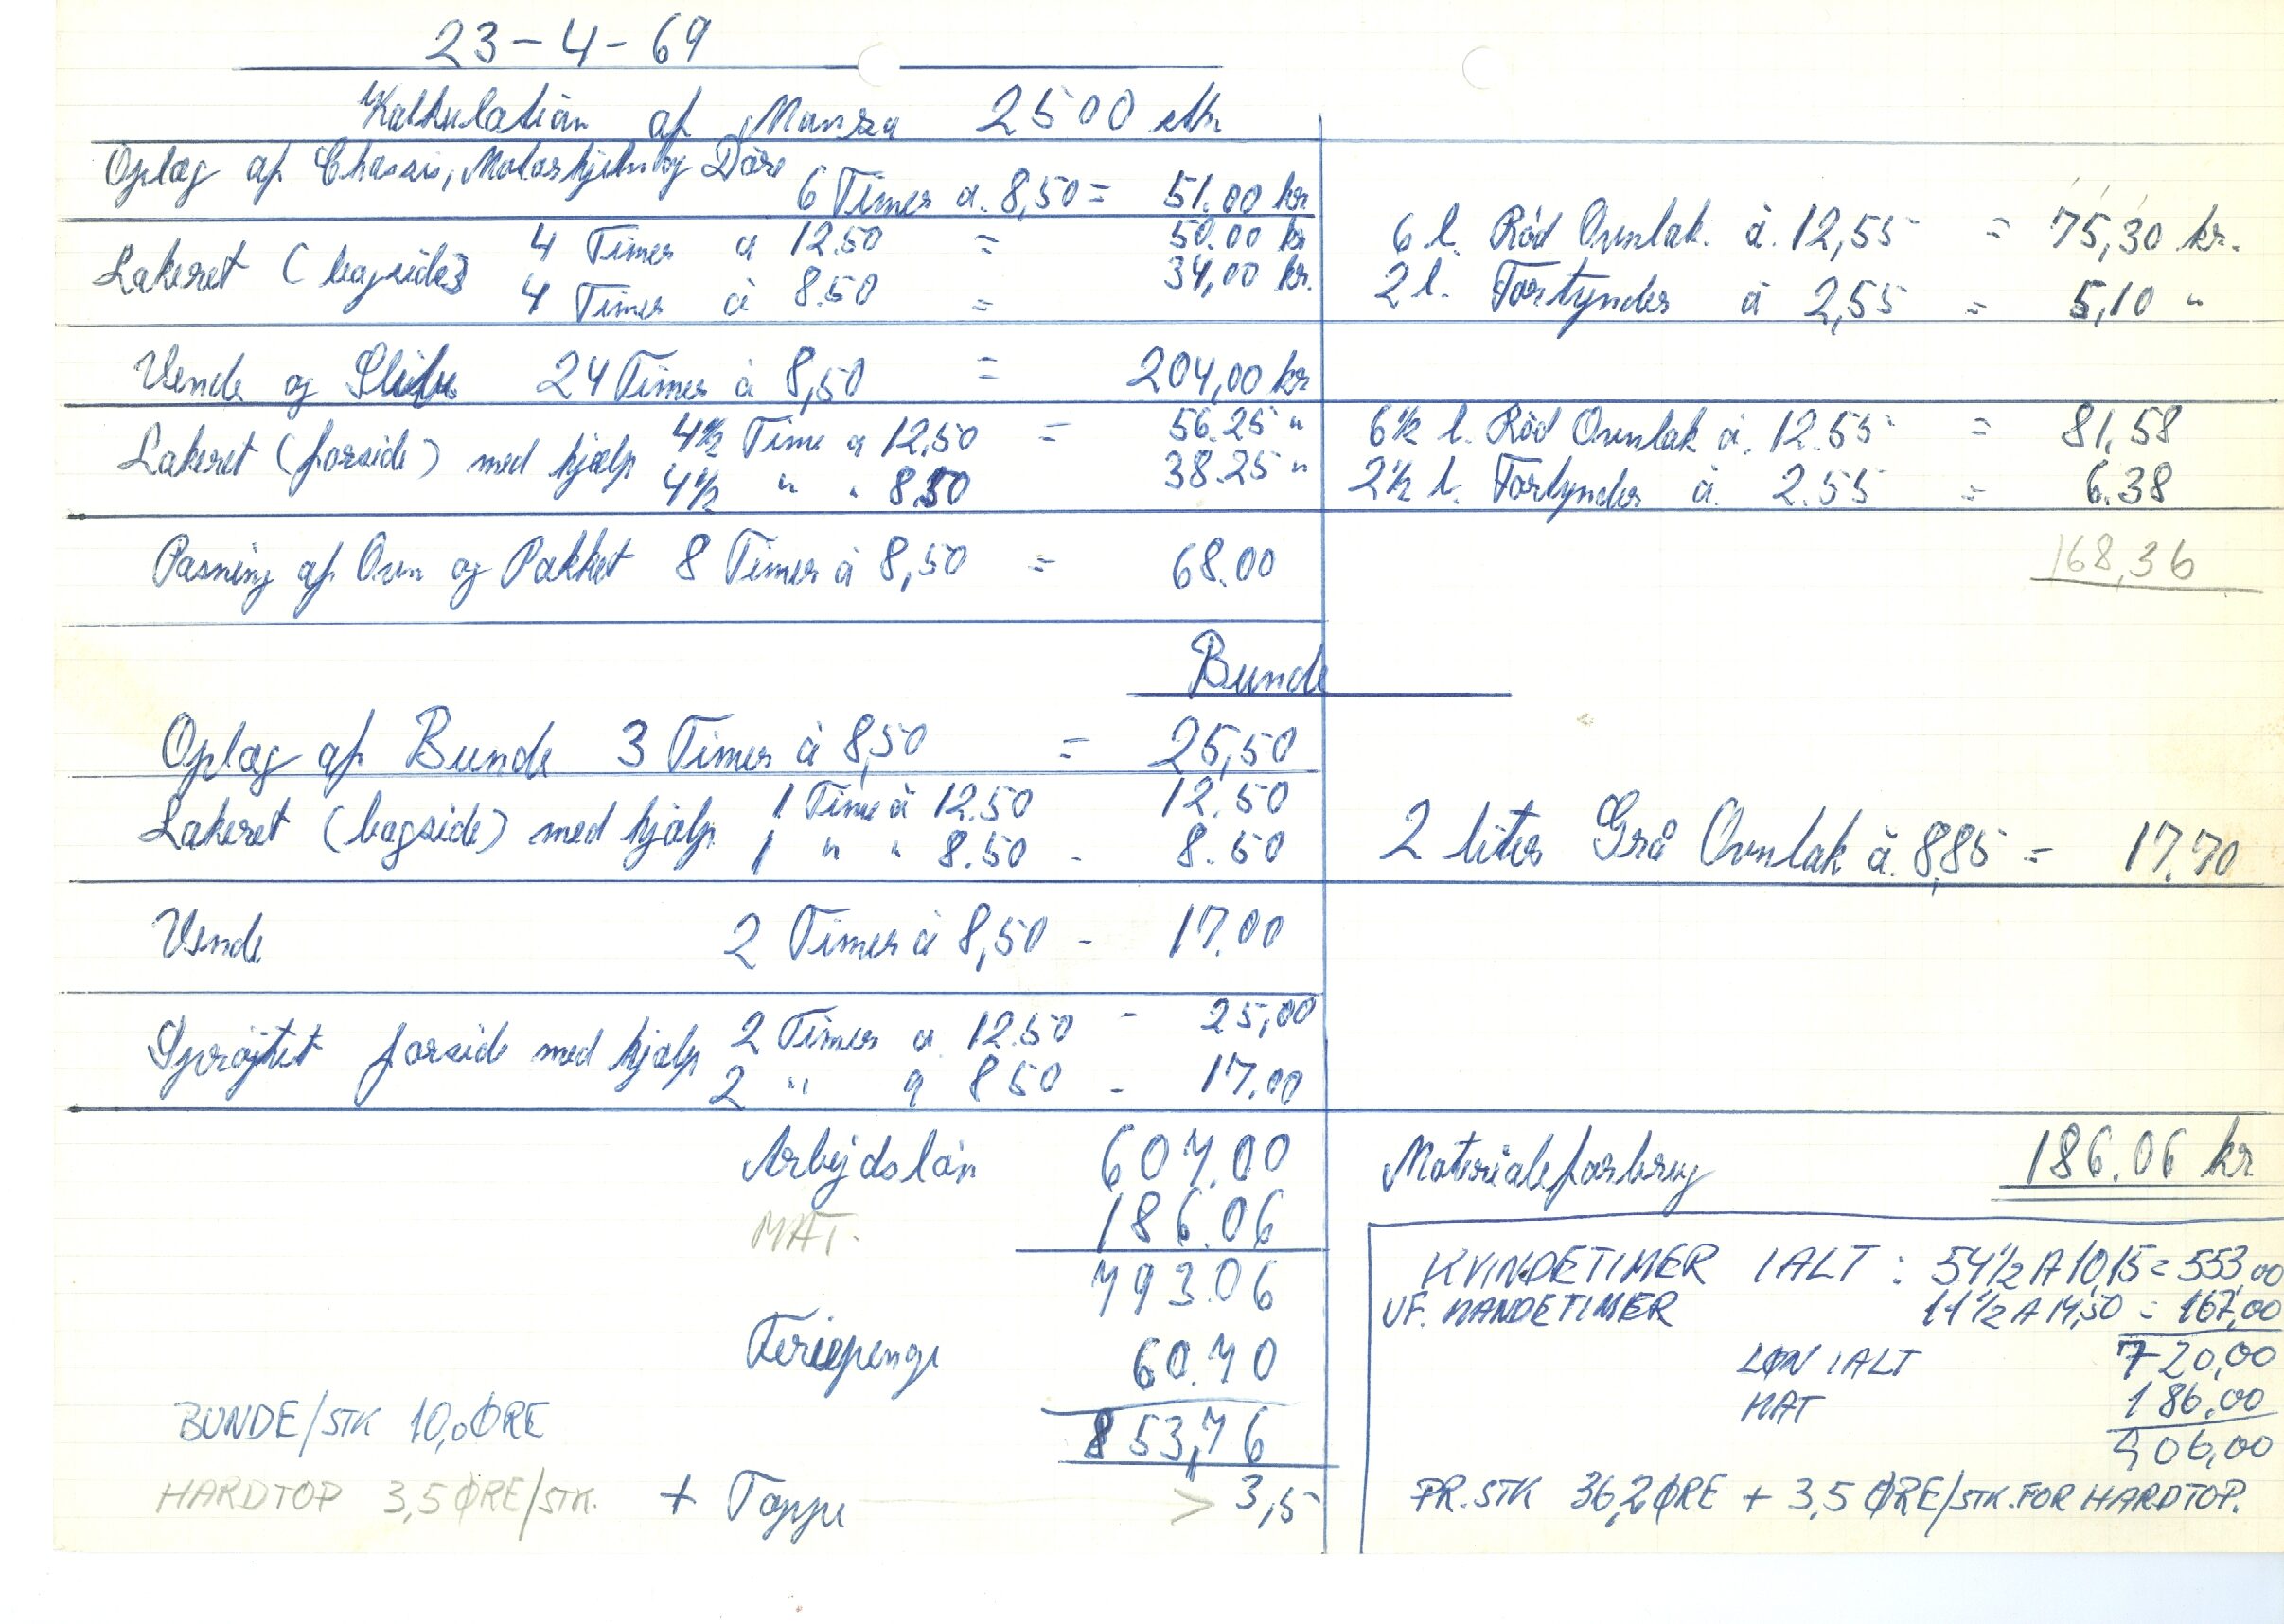 23-4-69
Kalkulation af Monza 2500 stk.
Oplæg af Chassis, Motorhjelm og Döre
6 Timer a. 8,50 = 51.00 kr.
Lakeret (bagside) 4 Timer a 12.50 = 50.00 kr
4 Timer à 8.50 = 34,00 kr.
6 l. Röd Ovnlak. à. 12,55 = 75,30 kr.
2 l. Fortynder à 2,55 = 5,10 "
Vende og Slibe 24 Timer à 8,50 = 204,00 kr
Lakeret (forside) med hjælp 4½ Time a 12,50 = 56.25 "
4½ " " 8.50 38.25 "
6½ l. Röd Ovnlak à. 12.55 = 81,58
2½ l. Fortynder à. 2.55 = 6.38
Pasning af Ovn og Pakket 8 Timer à 8,50 = 68.00
168,36
Bunde
Oplæg af Bunde 3 Timer à 8,50 = 25,50
Lakeret (bagside) med hjælp 1 Time à 12.50 12.50
1 " " 8.50 - 8.50
2 liter Grå Ovnlak à. 8,85 = 17.70
Vende 2 Timer à 8,50 - 17.00
Sprøjtet forside med hjælp 2 Timer a 12.50 - 25,00
2 " a 8 50 - 17.00
Arbejdslön 607.00
MAT. 186.06
793.06
Feriepenge 60.70
853,76
BUNDE/STK 10,0 ØRE
HARDTOP 3,5 ØRE/STK. + Toppe > 3,5
Materialeforbrug 186.06 kr
KVINDETIMER IALT: 54½ A 10,15 = 553,00
UF. MANDETIMER 11½ A 14,50 = 167,00
LØN IALT 720,00
MAT 186,00
906,00
PR. STK 36,2 ØRE + 3,5 ØRE/STK. FOR HARDTOP.